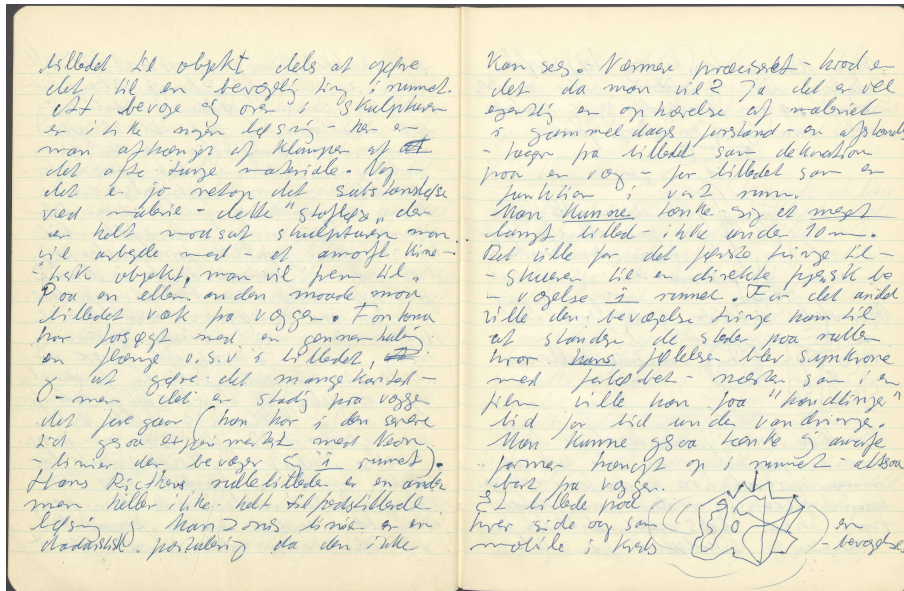 billedet til objekt dels at gøre
det til en bevægelig ting i rummet.
At bevæge sig over i skulpturen
er ikke nogen løsning - her er
man afhængig af klumpen af
det ofte tunge materiale. Nej -
det er jo netop det substansløse
ved maleri - dette "stofløse" der
er helt modsat skulpturen man
vil arbejde med - et amorft kine-
-tisk objekt, man vil frem til.
Paa en eller anden maade maa
billedet væk fra væggen. Fontana
har forsøgt med en gennemhuling
en flænge o.s.v. i billedet,
at gøre det mangekantet -
O - men det er stadig paa væggen
det foregaar (han har i den senere
tid ogsaa experimenteret med neon
- linier der bevæger sig i rummet).
Hans Richters rullebilleder er en anden
men heller ikke helt tilfredsstillende
løsning. Manzonis linie er en
dadaistisk postulering da den ikke
kan ses. Nærmere præciseret - hvad er
det da man vil? Ja det er vel
egentlig en ophævelse af maleriet
i gammeldags forstand - en afstand-
- tagen fra billedet som dekoration
paa en væg - for billedet som en
funktion i vort rum.
Man kunne tænke sig et meget
langt billed - ikke under 10 m.
Det ville for det første tvinge til-
- skueren til en direkte fysisk be
- vægelse i rummet. For det andet
ville den bevægelse tvinge ham til
at standse de steder paa rullen
hvor hans følelser blev synkrone
med forløbet - næsten som i en
film ville han faa "handlinger"
tid for tid under vandringe.
Man kunne ogsaa tænke sig amorfe
former hængt op i rummet - altsaa
bort fra væggen.
Et billede paa
hver side og som en
mobile i kreds - bevægelse